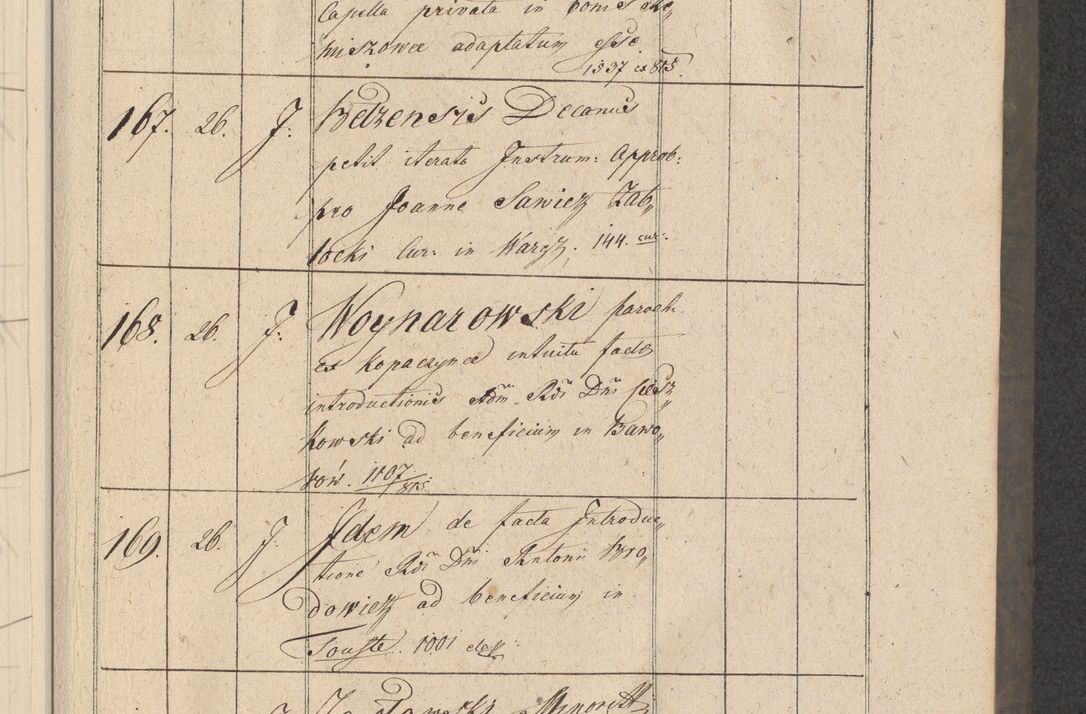 Capella privata in Domo
miszowce adaptatum esse.
1537 ex 815
167. 26. J: Belzensis Decanus
petit iterato Instrum: Approb:
pro Joanne Sawicz Zab„
łocki Cur: in Waręz. 144. cur:
168. 26. J: Woynarowski paroch.
ex Kopaczynce intuitu factæ
introductionis Adm Rdi Dni Ciesz„
kowski ad beneficium in Bawo„
rów. 1107/815
169. 26. J: Idem de facta Introduc„
tione Rdi Dni Antonii Bro„
dowicz ad beneficium in
Touste. 1001
Minoritt